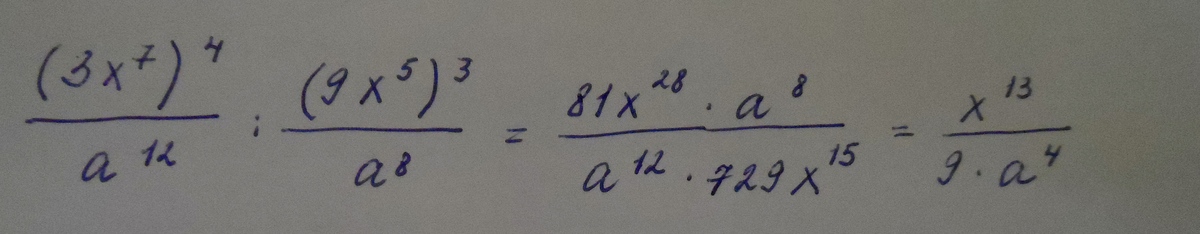 (3x⁷)⁴/a¹² : (9x⁵)³/a⁸ = 81x²⁸ · a⁸/a¹² · 729x¹⁵ = x¹³/9 · a⁴